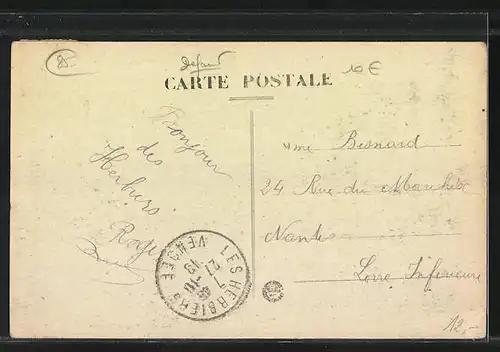 85
Defaut
10 €
CARTE POSTALE
Bonjour
des
Herbiers
Roger
Mme Besnard
24 Rue du Marchix
Nantes
Loire Inférieure
LES HERBIERS
VENDÉE
12,-